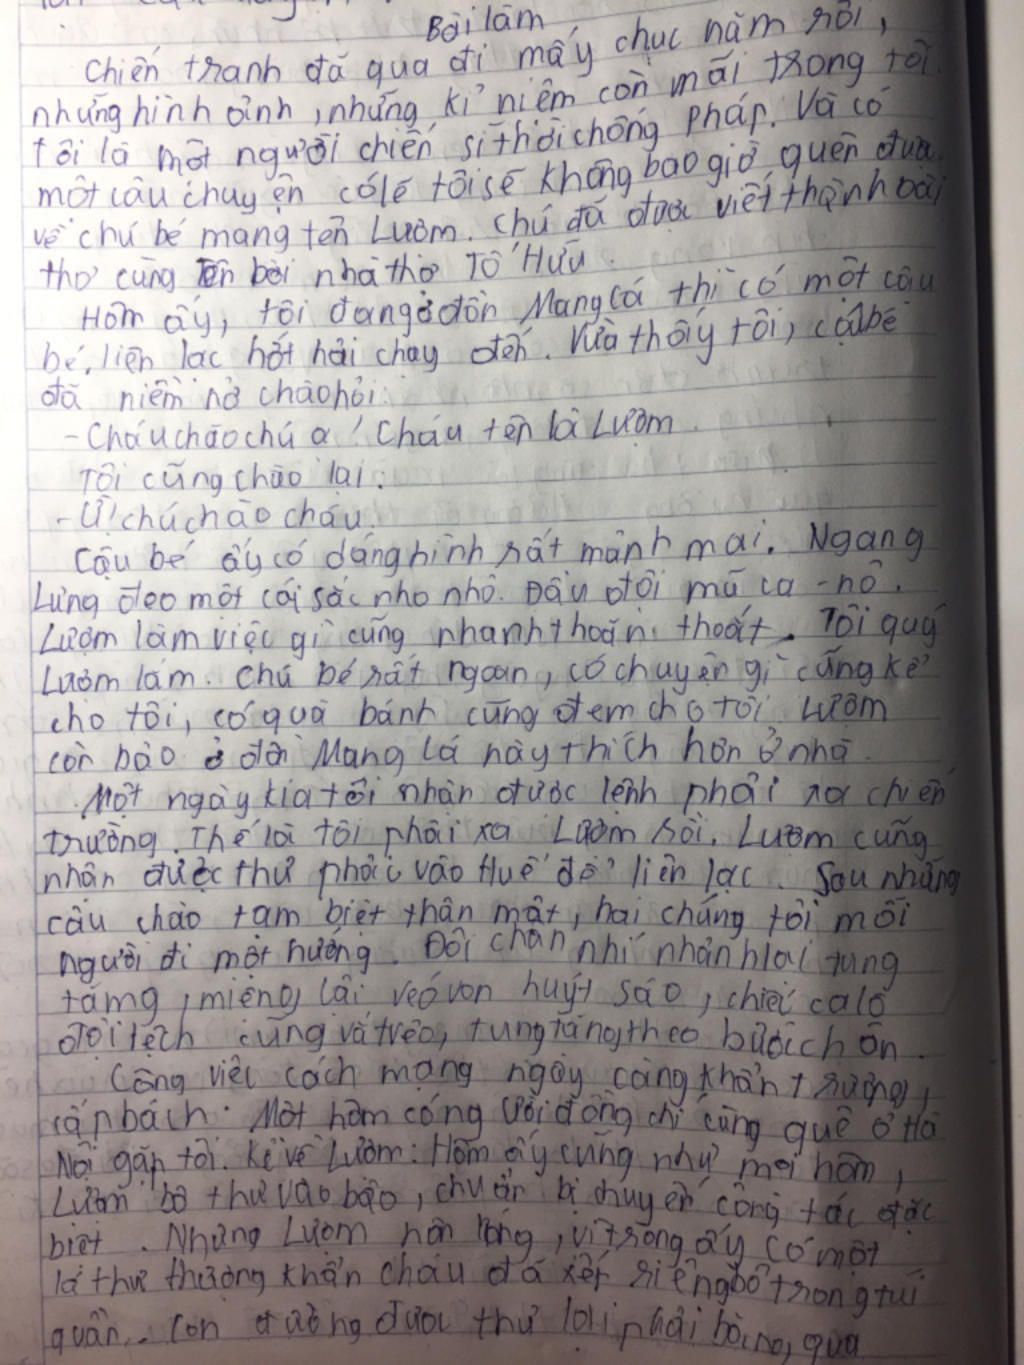 Bài làm
Chiến tranh đã qua đi mấy chục năm rồi,
những hình ảnh, những kỉ niệm còn mãi trong tôi
tôi là một người chiến sĩ thời chống Pháp. Và có
một câu chuyện có lẽ tôi sẽ không bao giờ quên được
về chú bé mang tên Lượm. Chú đã được viết thành bài
thơ cùng tên bởi nhà thơ Tố Hữu.
Hôm ấy, tôi đang ở đồn Mang Cá thì có một cậu
bé, liên lạc hớt hải chạy đến. Vừa thấy tôi, cậu bé
đã niềm nở chào hỏi:
- Cháu chào chú ạ! Cháu tên là Lượm
Tôi cũng chào lại:
- Ừ! chú chào cháu.
Cậu bé ấy có dáng hình rất mảnh mai. Ngang
Lưng đeo một cái sắc nho nhỏ. Đầu đội mũ ca-nô.
Lượm làm việc gì cũng nhanh thoăn thoắt. Tôi quý
Lượm lắm. Chú bé rất ngoan, có chuyện gì cũng kể
cho tôi, có quà bánh cũng đem cho tôi. Lượm
còn bảo ở đồn Mang Cá này thích hơn ở nhà.
Một ngày kia tôi nhận được lệnh phải ra chiến
trường. Thế là tôi phải xa Lượm rồi. Lượm cũng
nhận được thư phải vào Huế để liên lạc. Sau những
câu chào tạm biệt thân mật, hai chúng tôi mỗi
người đi một hướng. Đôi chân nhí nhảnh lại tung
tăng, miệng lại véo von huýt sáo, chiếc ca lô
đội lệch cũng vắt vẻo, tung tăng theo bước chân.
Công việc cách mạng ngày càng khẩn trương,
cấp bách. Một hôm có người đồng chí cùng quê ở Hà
Nội gặp tôi. Kể về Lượm: Hôm ấy cũng như mọi hôm,
Lượm bỏ thư vào bao, chuẩn bị chuyến công tác đặc
biệt. Nhưng Lượm hơi lo lắng, vì trong ấy có một
lá thư thượng khẩn cháu đã xếp riêng bỏ trong túi
quần. Con đường đưa thư lại phải băng qua